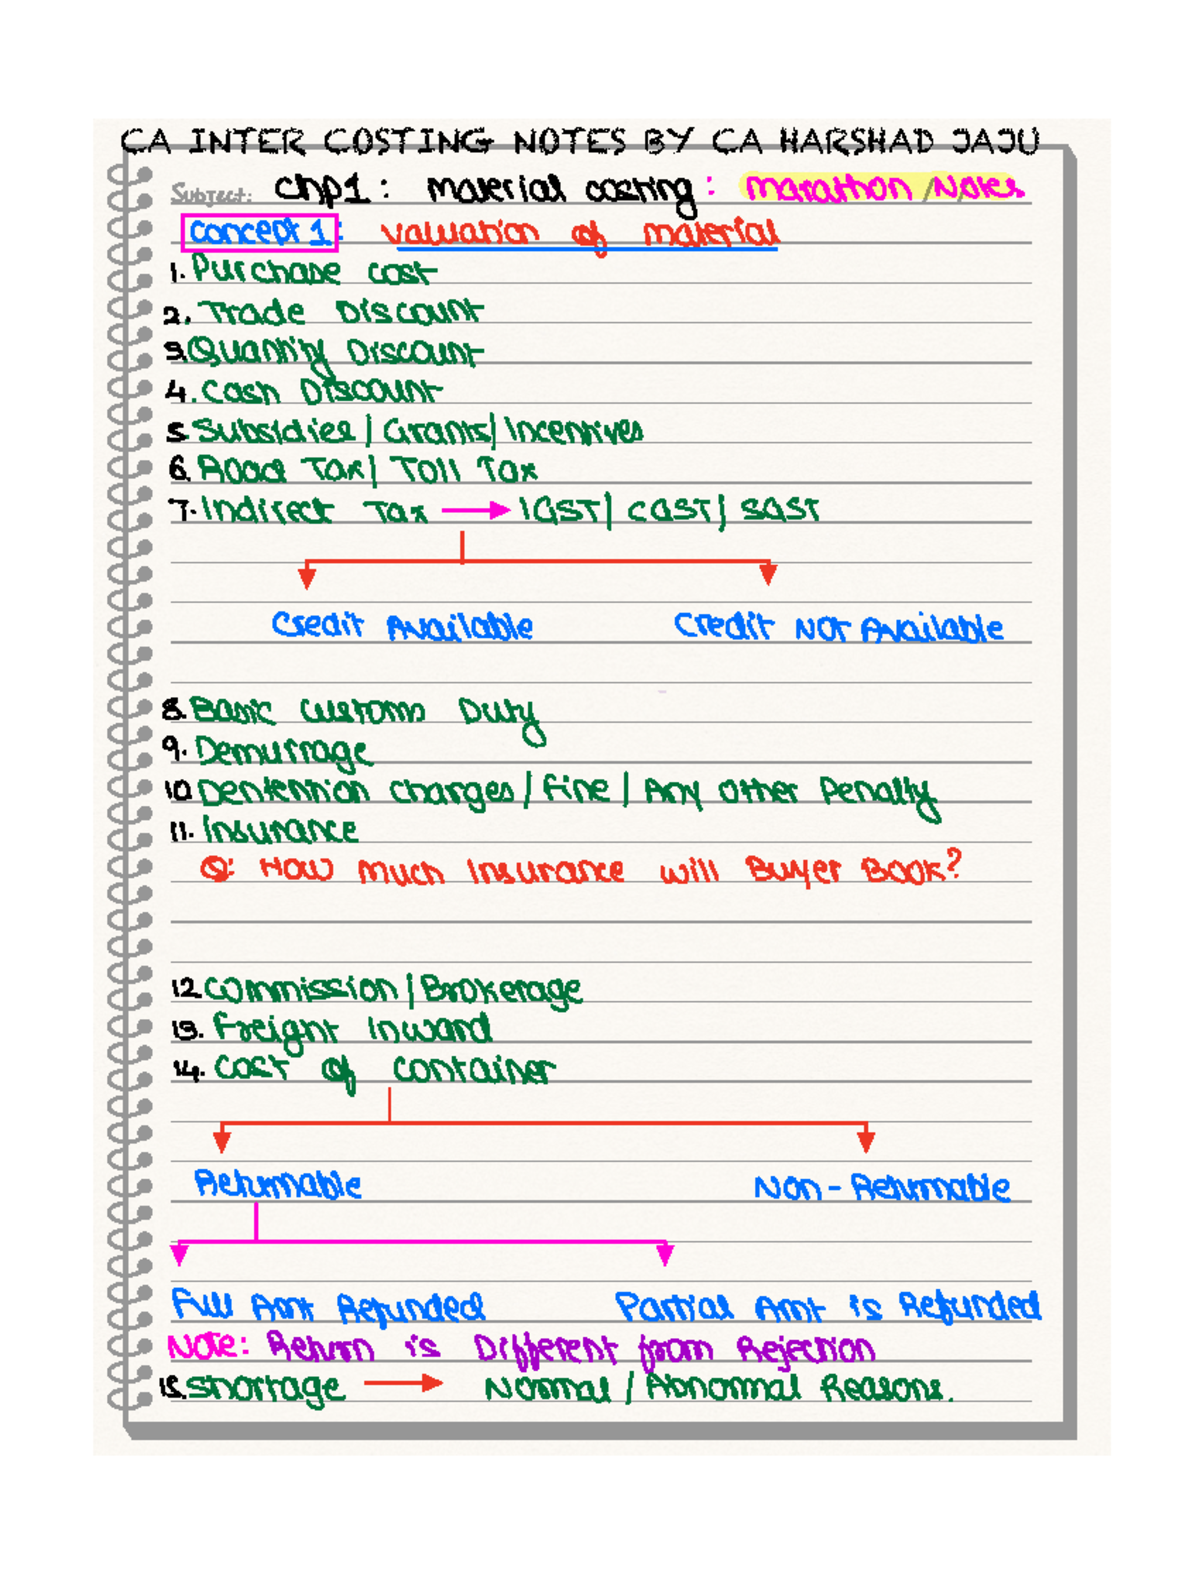 CA INTER COSTING NOTES BY CA HARSHAD JAJU
Subject: Chp1: Material costing: Marathon Notes
Concept 1: Valuation of material
1. Purchase cost
2. Trade Discount
3. Quantity Discount
4. Cash Discount
5. Subsidies | Grants | Incentives
6. Road Tax | Toll Tax
7. Indirect Tax → IGST | CGST | SGST
Credit Available Credit Not Available
8. Basic Customs Duty
9. Demurrage
10. Dentention charges / Fine | Any Other Penalty
11. Insurance
Q: How Much Insurance will Buyer Book?
12. Commission | Brokerage
13. Freight Inward
14. Cost of container
Returnable Non-Returnable
Full Amt Refunded Partial Amt is Refunded
Note: Return is Different from Rejection
15. Shortage → Normal / Abnormal Reasons.